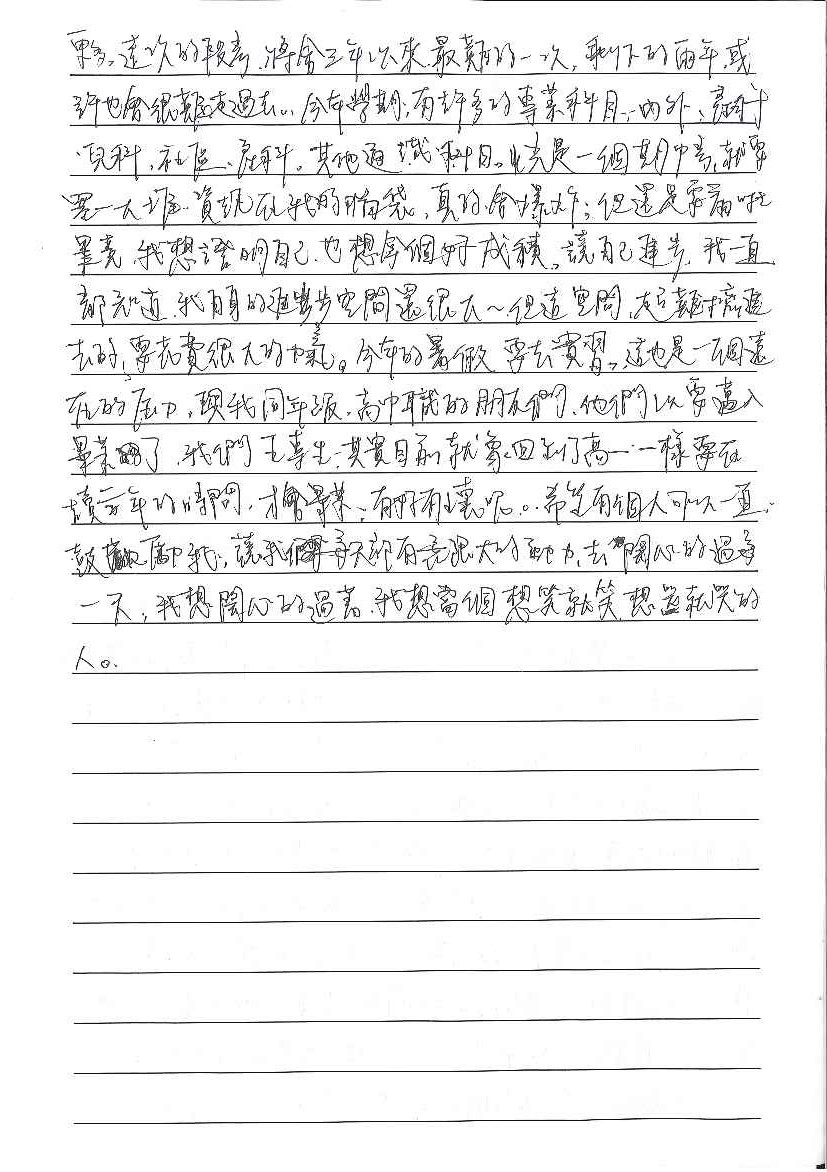 更多。這次的段考,將會三年以來,最難的一次,剩下的兩年,或
許也會很難走過去。今年學期,有許多的專業科目,內外、
兒科、社區、產科。其他通識科目。光是一個期中考,就要
一大堆資訊在我的腦袋,真的會爆炸,但還是要
畢竟,我想證明自己,也想拿個好成績,讓自己進步,我一直
都知道,我自身的進步空間還很大~但這空間,
去的,要花費很大的力氣。今年的暑假,要去實習,這也是一個
在的壓力,跟我同年級,高中職的朋友們,他們以要邁入
畢業了,我們五專生,其實目前就像回到了高一一樣要在
讀三年的時間,才會畢業,有好有壞呢。希望有個人可以一直
鼓勵我,讓我每天都有很大的動力,去開心的過每
一天,我想開心的過着,我想當個想笑就笑,想哭就哭的
人。